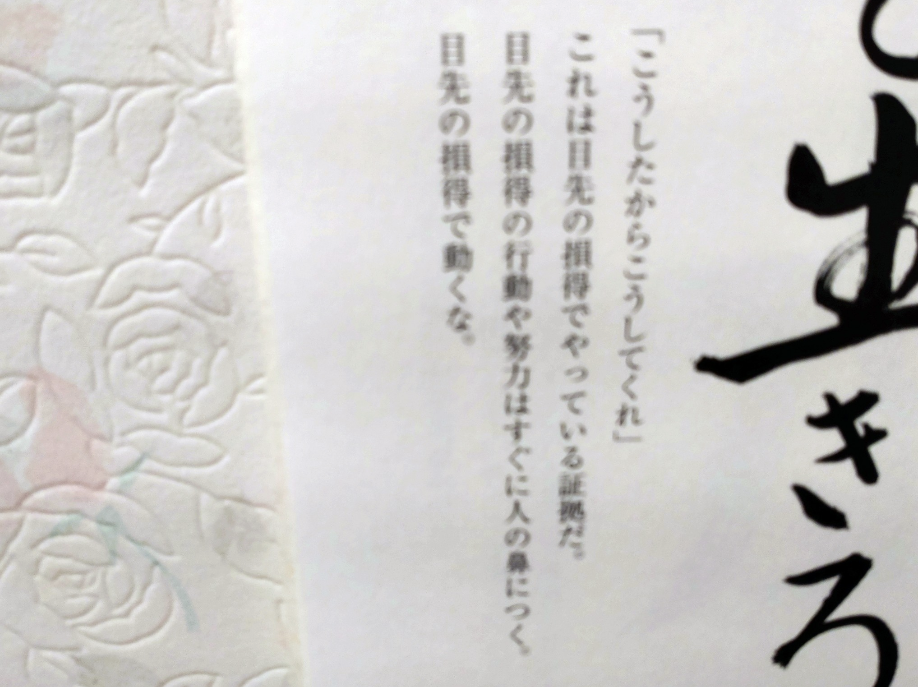 生きろ
「こうしたからこうしてくれ」
これは目先の損得でやっている証拠だ。
目先の損得の行動や努力はすぐに人の鼻につく。
目先の損得で動くな。